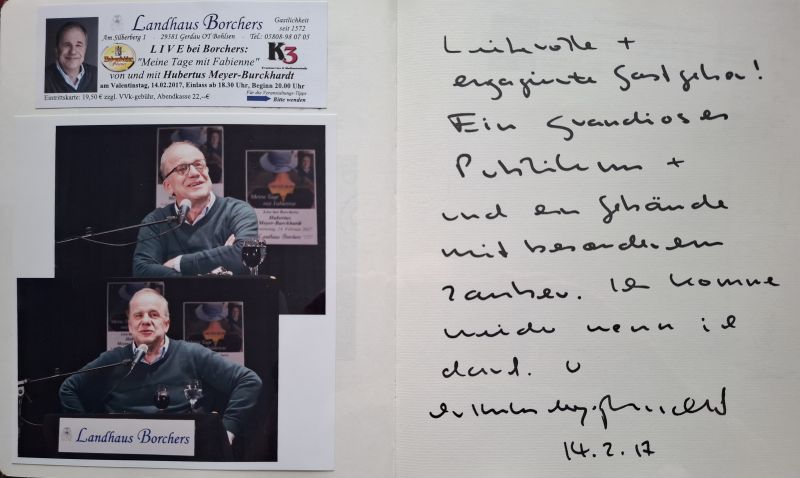 Landhaus Borchers
Gastlichkeit
seit 1572
Am Silberberg 1 - 29581 Gerdau OT Bohlsen - Tel.: 05808-98 07 05
LIVE bei Borchers:
"Meine Tage mit Fabienne"
K3
von und mit Hubertus Meyer-Burckhardt
am Valentinstag, 14.02.2017, Einlass ab 18.30 Uhr, Beginn 20.00 Uhr
Eintrittskarte: 19,50 € zzgl. VVk-gebühr, Abendkasse 22,--€
Für die Veranstaltungs-Tipps
Bitte wenden
Meine Tage
mit Fabienne
Live bei Borchers
Hubertus
Meyer-Burckhardt
Landhaus Borchers
Landhaus Borchers
Liebevolle +
engagierte Gastgeber!
Ein grandioses
Publikum +
und ein Gebäude
mit besonderem
Zauber. Ich komme
wieder wenn ich
darf.
14.2.17